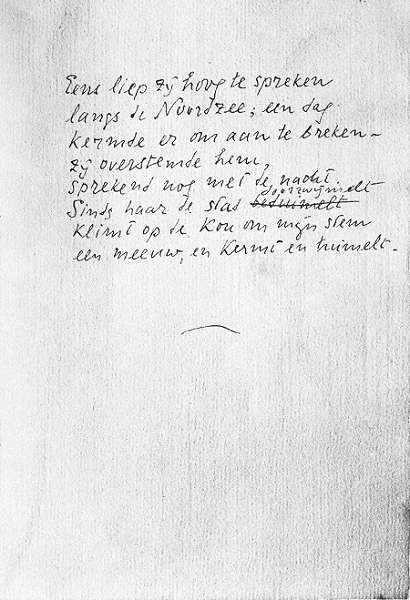 Eens liep zij hoog te spreken
langs de Noordzee; een dag
kermde er om aan te breken –
zij overstemde hem,
sprekend nog met de nacht.
doorzwijmelt
Sinds haar de stad beduimelt
klimt op de kou om mijn stem
een meeuw, en kermt en tuimelt.